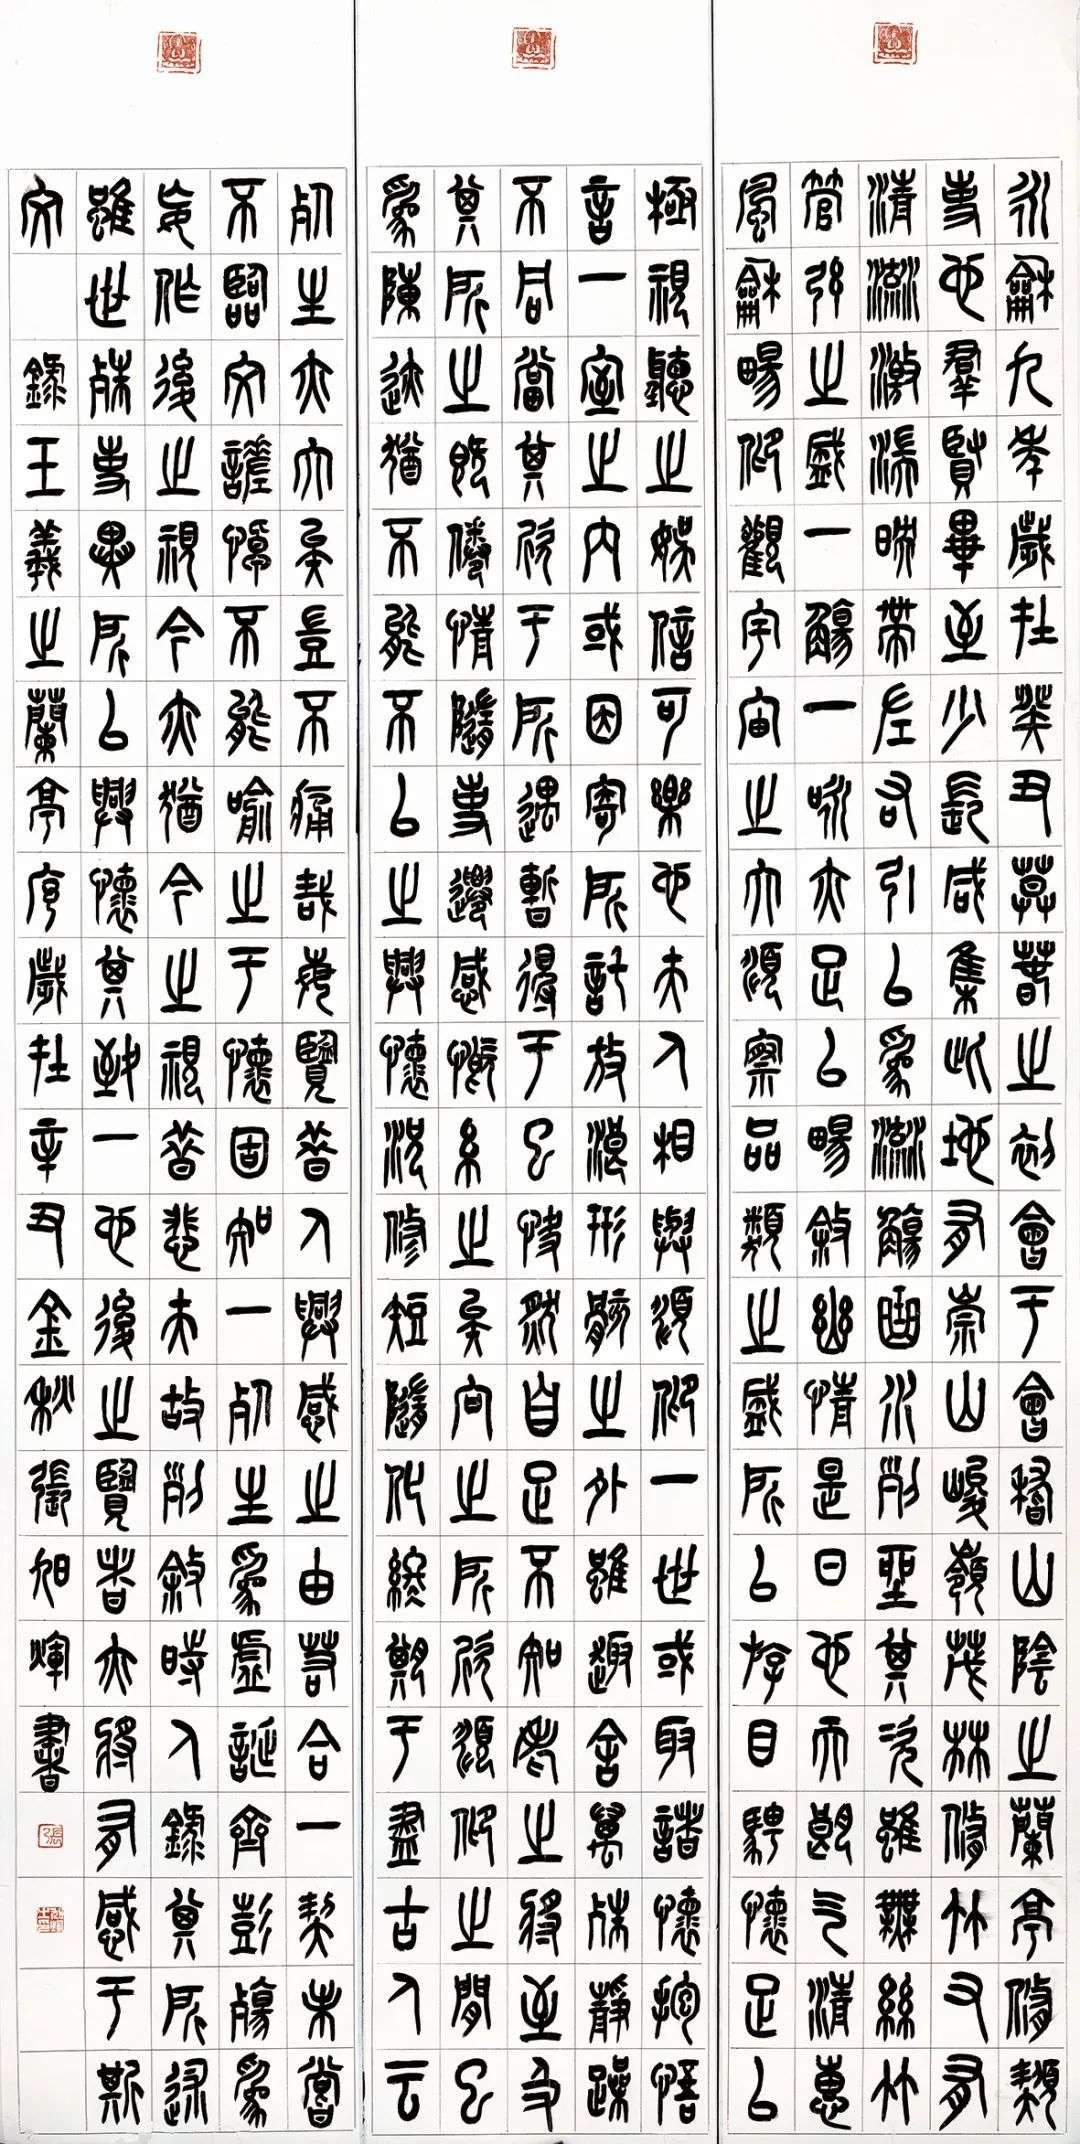 永龢九年歲在癸丑暮春之初會于會稽山陰之蘭亭脩禊
事也羣賢畢至少長咸集此地有崇山峻嶺茂林脩竹又有
清流激湍映帶左右引以爲流觴曲水列坐其次雖無絲竹
管弦之盛一觴一詠亦足以暢敘幽情是日也天朗气清惠
風龢暢仰觀宇宙之大俯察品類之盛所以游目騁懷足以
極視聽之娛信可樂也夫人相與俯仰一世或取諸懷抱悟
言一室之内或因寄所託放浪形骸之外雖趣舍萬殊靜躁
不同當其欣于所遇暫得于己快然自足不知老之將至及
其所之既倦情隨事遷感慨系之矣向之所欣俯仰之閒已
爲陳迹猶不能不以之興懷況修短隨化終期于盡古人云
死生亦大矣豈不痛哉每覽昔人興感之由若合一契未嘗
不臨文嗟悼不能喻之于懷固知一死生爲虛誕齊彭殤爲
妄作後之視今亦猶今之視昔悲夫故列敘時人錄其所述
雖世殊事異所以興懷其致一也後之覽者亦將有感于斯
文 錄王羲之蘭亭序歲在辛丑金秋張旭煇書